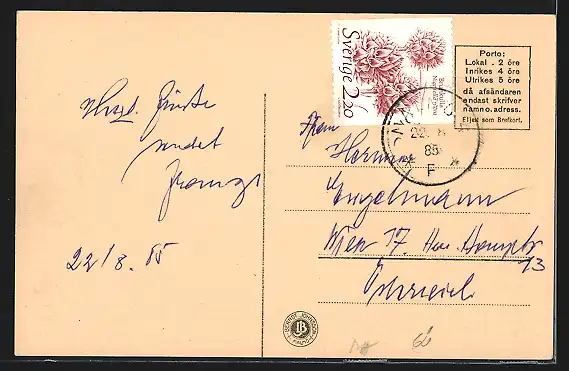 Herzl. Grüsse
sendet
Franz
22/8. 85
Sverige 220
Porto:
Lokal . 2 öre
Inrikes 4 öre
Utrikes 5 öre
då afsändaren
endast skrifver
namn o. adress.
Eljest som Brefkort.
22. 8
85
F
Herrn
Hermann
Engelmann
Wien 17
13
Österreich